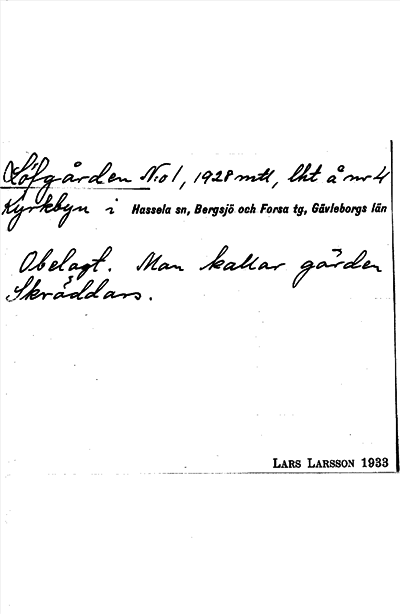 Löfgården No 1, 1928 mtl, lht å nr 4
Kyrkbyn i Hassela sn, Bergsjö och Forsa tg, Gävleborgs län
Obelagt. Man kallar gården
Skräddars.
LARS LARSSON 1933